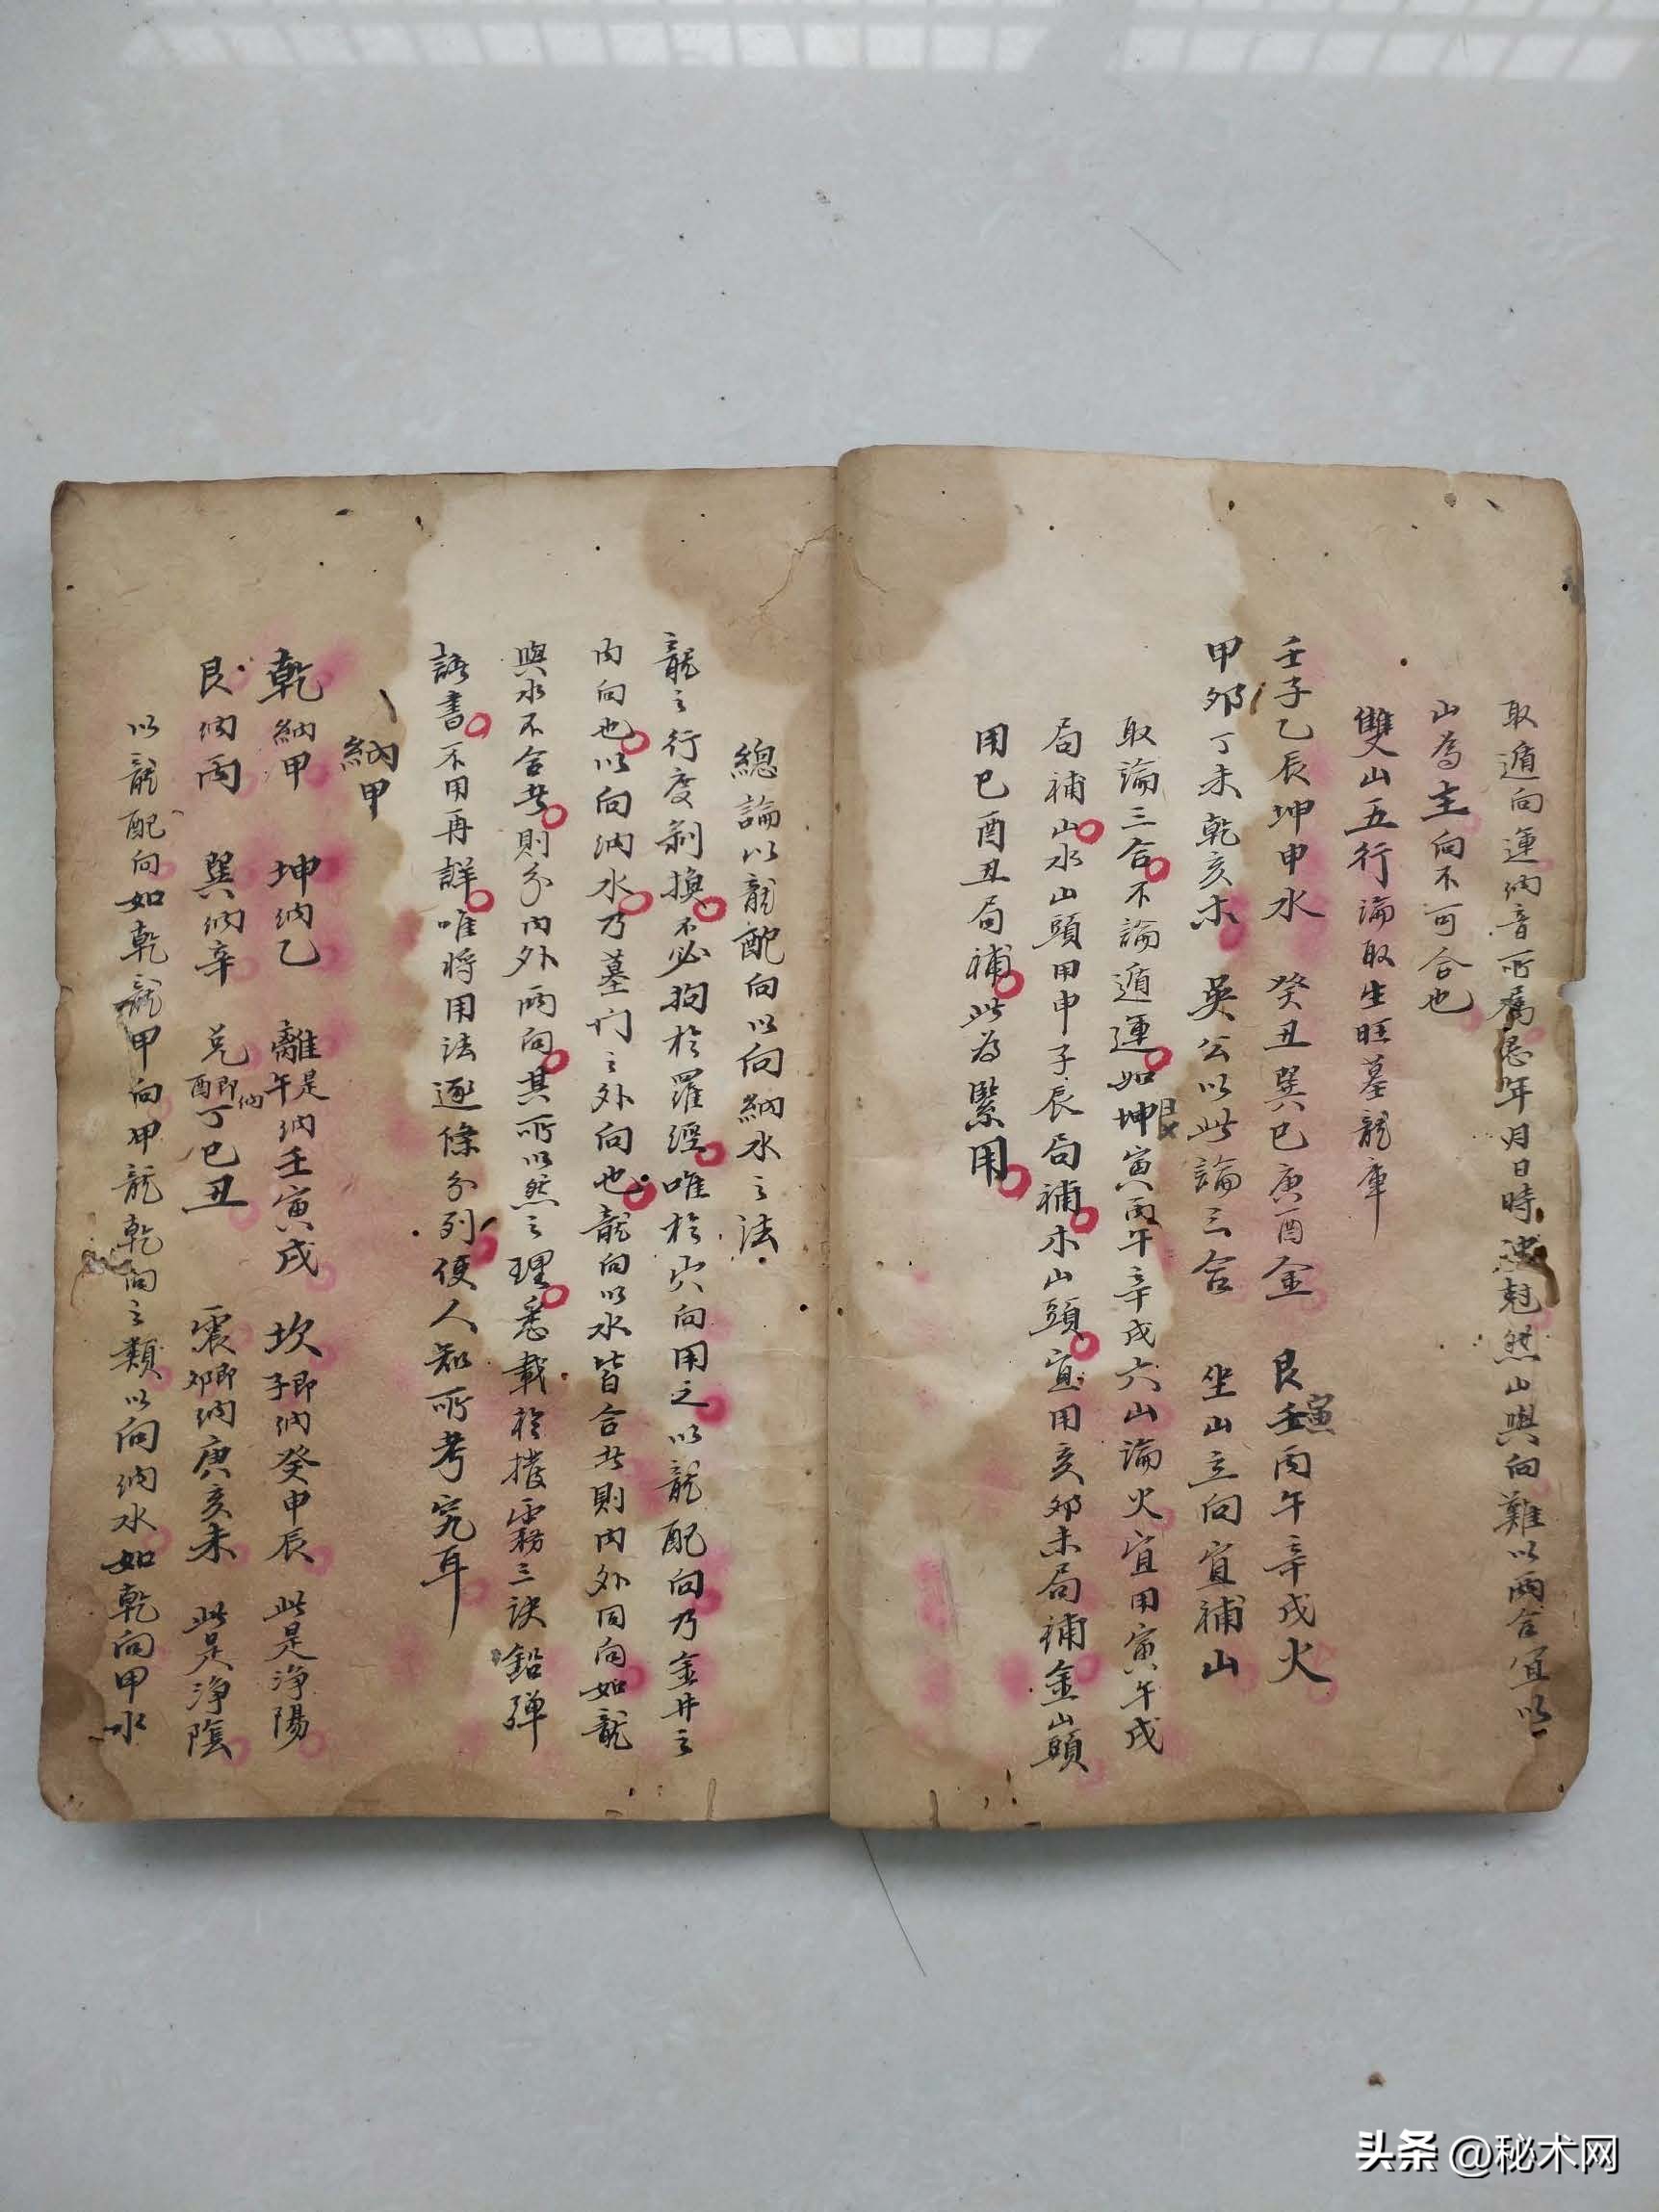 取遁向運納音所屬忌年月日時冲尅然山與向難以兩合宜以
山為主向不可合也
雙山五行論取生旺墓龍庫
壬子乙辰坤申水　癸丑巽巳庚酉金　艮壬寅丙午辛戌火
甲卯丁未乾亥木　吳公以此論三合　坐山立向宜補山
取論三合不論遁運如坤艮寅丙午辛戌六山論火宜用寅午戌
局補山水山頭用申子辰局補木山頭宜用亥卯未局補金山頭
用巳酉丑局補此為緊用
總論以龍配向以向納水之法
龍之行度剝換不必拘於羅經唯於穴向用之以龍配向乃金井之
內向也以向納水乃墓门之外向也龍向以水皆合者則內外同向如龍
與水不合者則分內外兩向其所以然之理悉載於撥霧三訣鉛彈
諸書不用再詳唯將用法逐條分列便人知所考究耳
納甲
乾納甲　坤納乙　離是午納壬寅戌　坎即子納癸申辰　此是淨陽
艮納丙　巽納辛　兑即酉納丁巳丑　震即卯納庚亥未　此是淨陰
以龍配向如乾龍甲向甲龍乾向之類以向納水如乾向甲水
头条 @秘术网